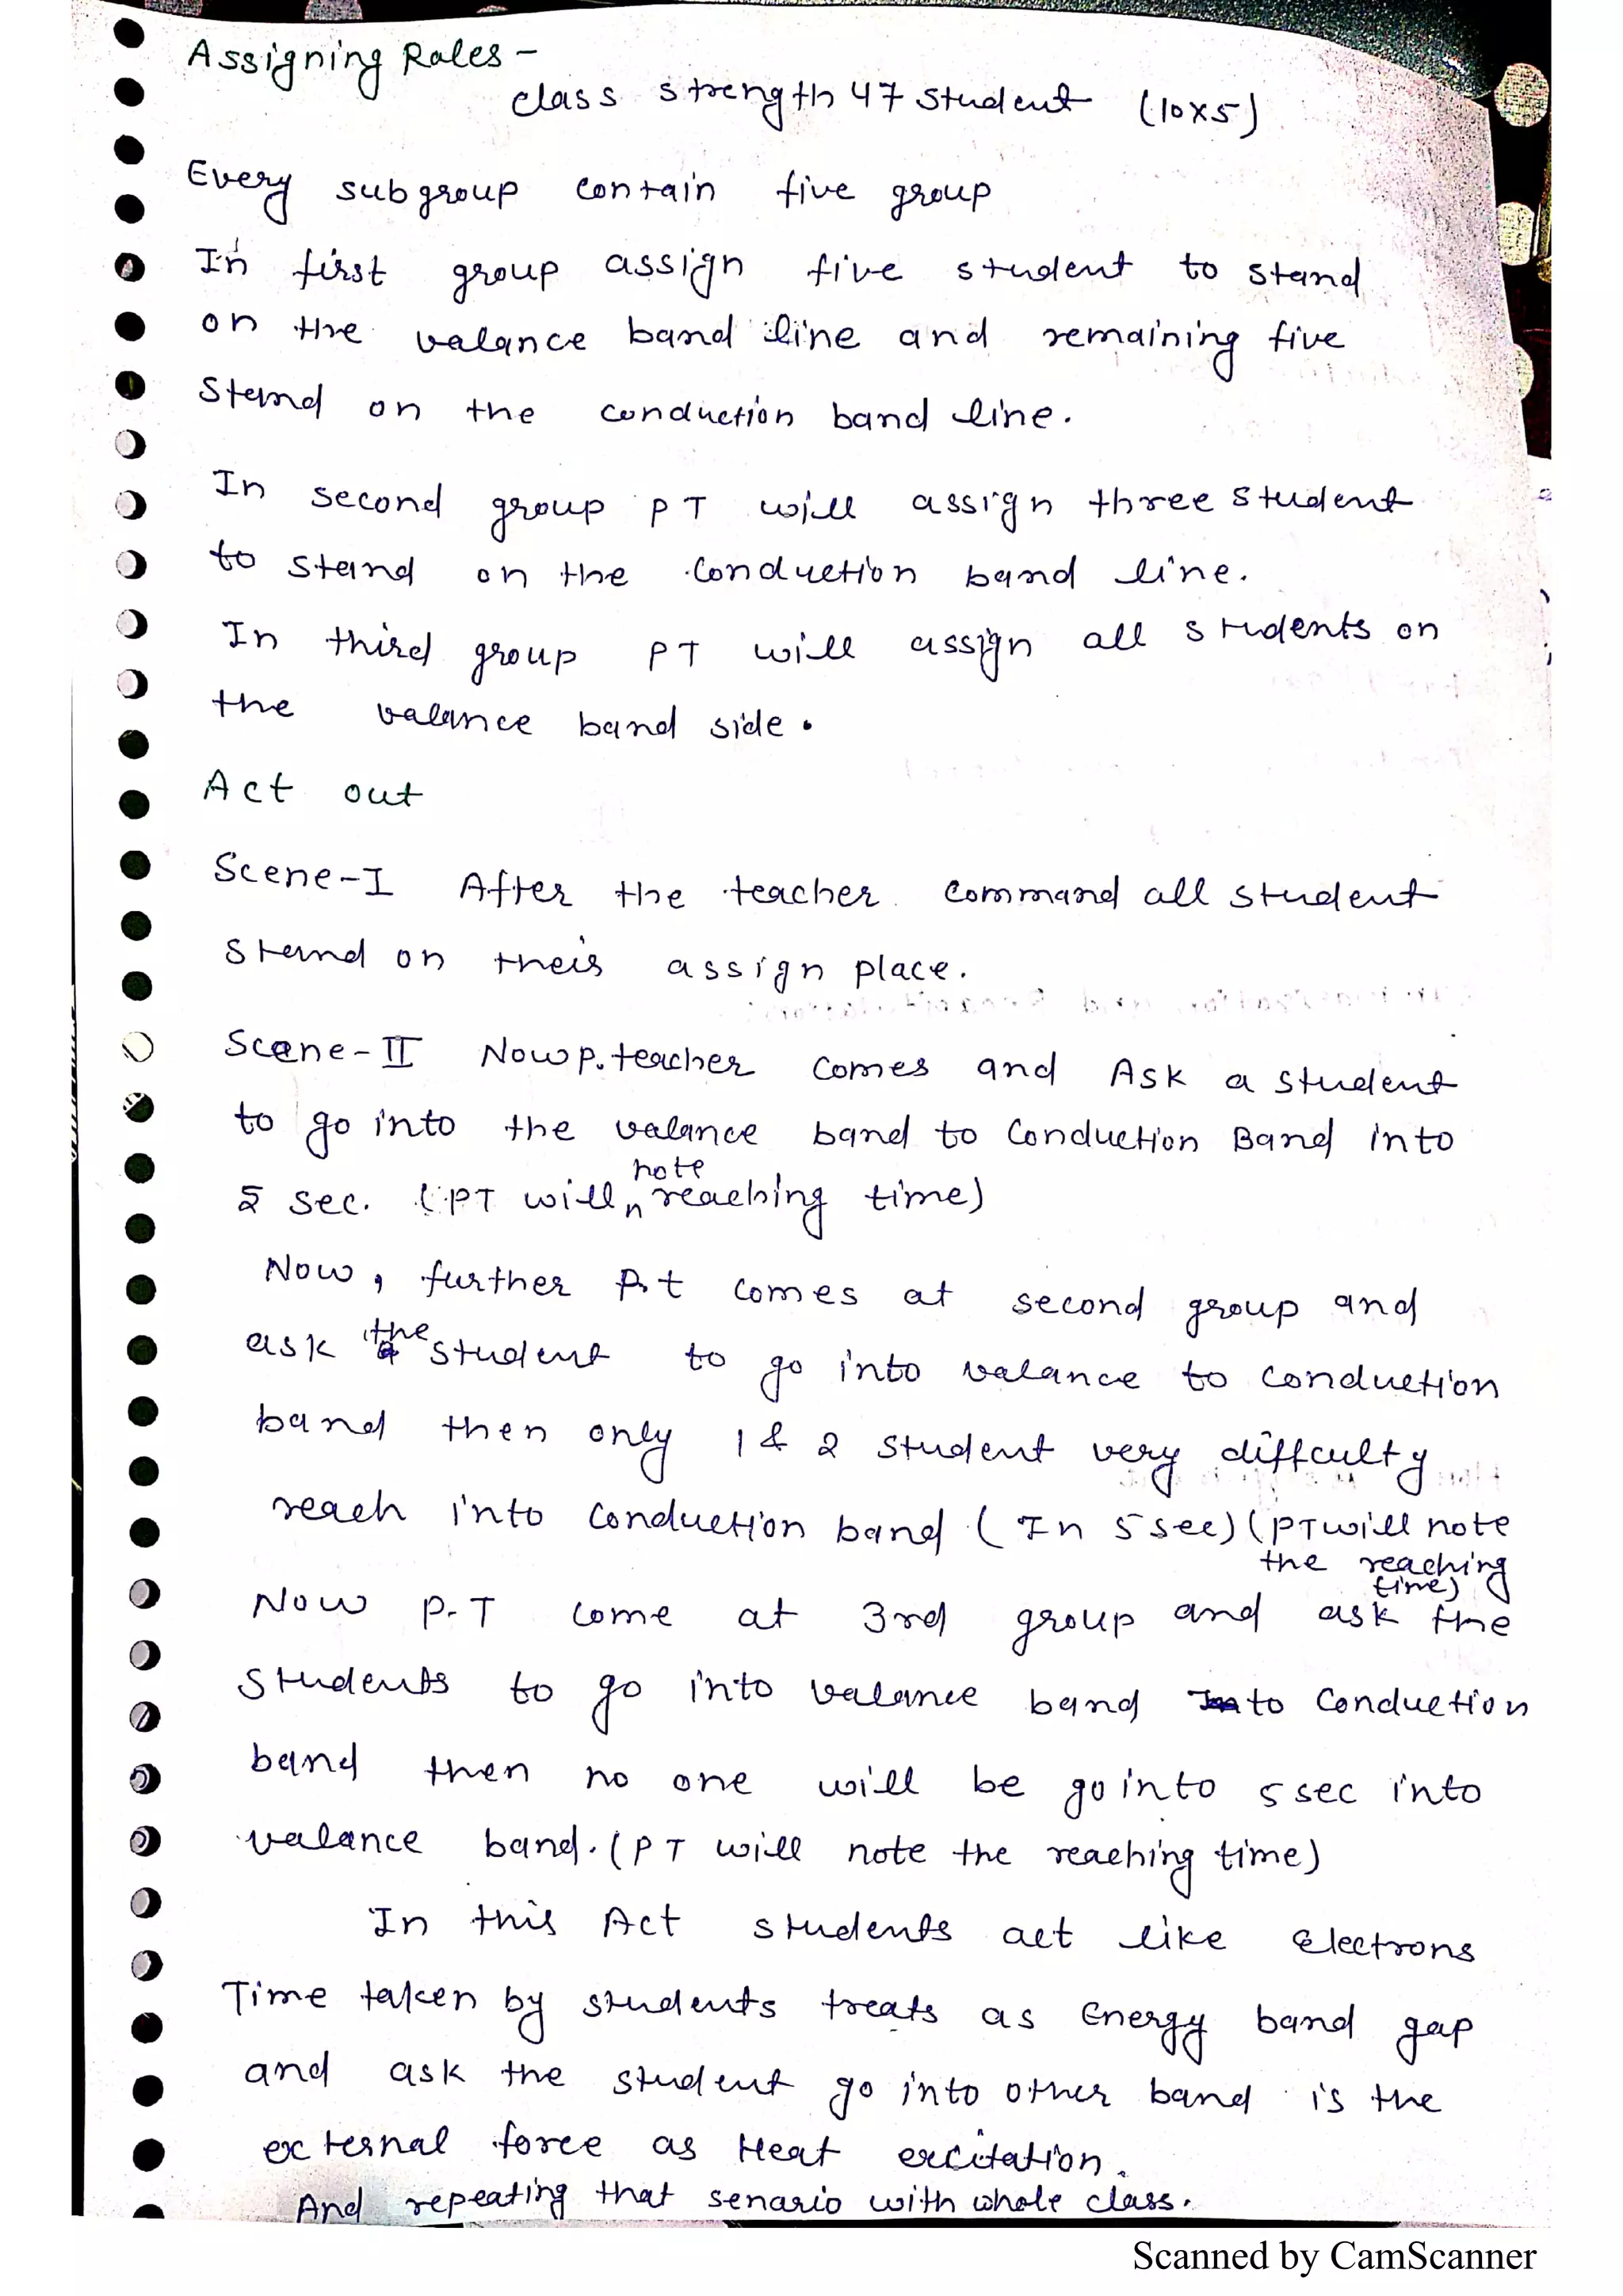 Assigning Roles -
class strength 47 student (10x5)
Every subgroup contain five group
In first group assign five student to stand
on the valance band line and remaining five
stand on the conduction band line.
In second group PT will assign three student
to stand on the conduction band line.
In third group PT will assign all students on
the valance band side.
Act out
Scene-I After the teacher command all student
stand on their assign place.
Scene-II Now P. teacher comes and Ask a student
to go into the valance band to Conduction Band into
5 sec. (PT will note reaching time)
Now, further P.t comes at second group and
ask the student to go into valance to conduction
band then only 1 & 2 student very diffculty
reach into conduction band (In 5 sec) (PT will note
the reaching
time)
Now P.T come at 3rd group and ask the
students to go into valance band to Conduction
band then no one will be go into 5 sec into
valance band. (PT will note the reaching time)
In this Act students act like Electrons
Time taken by students treats as Energy band gap
and ask the student go into other band is the
external force as Heat excitation.
And repeating that senario with whole class.
Scanned by CamScanner